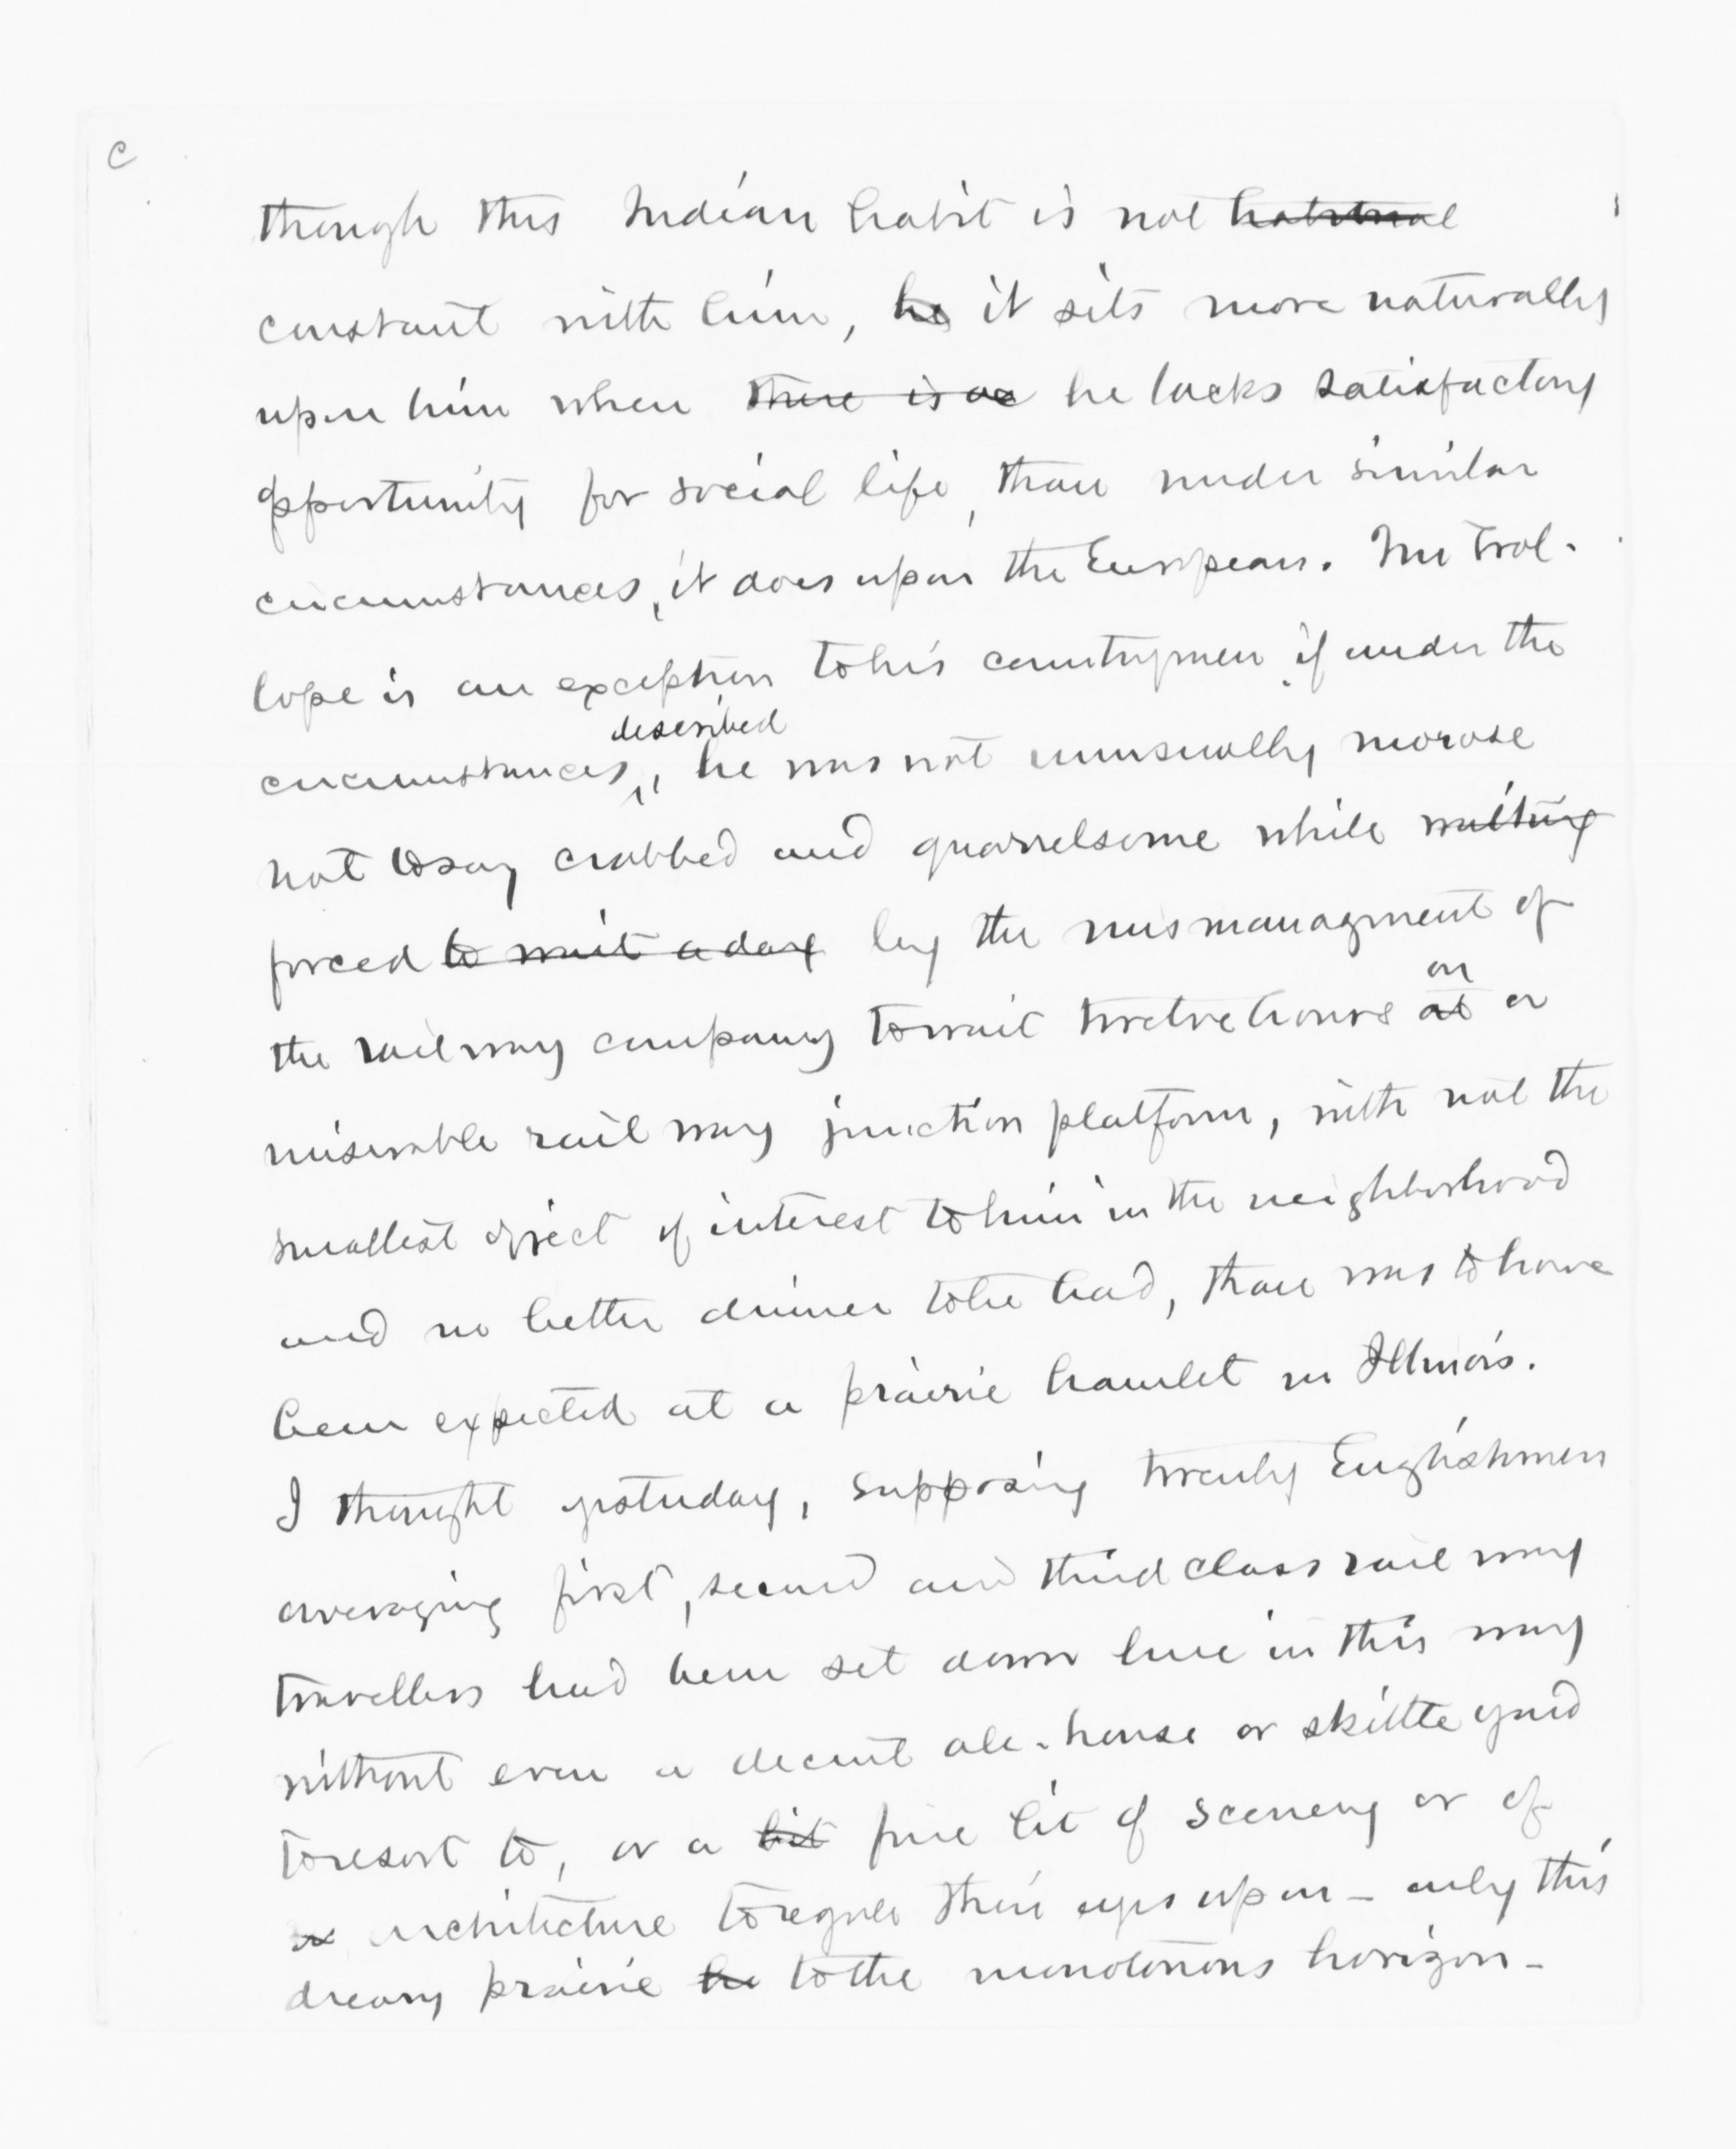 c
though this Indian habit is not habitual
constant with him, he it sits more naturally
upon him when there is as he lacks satisfactory
opportunity for social life, than under similar
circumstances, it does upon the European. Mr Trol-
lope is an exception to his countrymen if under the
described
circumstances, he was not unusually morose
not to say crabbed and quarrelsome while waiting
forced to wait a day by the mismanagment of
on
the railway company to wait twelve hours at a
miserable railway junction platform, with not the
smallest object of interest to him in the neighborhood
and no better dinner to be had, than was to have
been expected at a prairie hamlet in Illinois.
I thought yesterday, supposing twenty Englishmen
averaging first, second and third class railway
travellers had been set down here in this way
without even a decent ale-house or skittle yard
to resort to, or a bit fine bit of scenery or of
architecture to regale their eyes upon - only this
dreary prairie to the monotonous horizon -